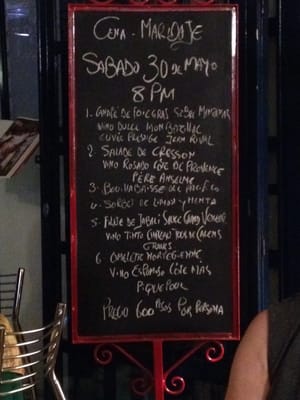 CENA - MARIDAJE
SABADO 30 DE MAYO
8 PM
1. DE FOIE GRAS
VINO DULCE MONBAZILLAC
CUVÉE PRESTIGE JEAN RIVAL
2. SALADE DE CRESSON
VINO ROSADO CÔTE DE PROVENCE
PÈRE ANSELME
3. BOUILLABAISSE
4. SORBET DE LIMON Y MENTA
5. FILETE DE JABALI SAUCE GRAND VENEUR
VINO TINTO CHATEAU TOUR DE CALENS
GRAVES
6. OMELETTE NORVEGIENNE
VINO ESPUMOSO CÔTE MAS
PIQUEPOUL
PRECIO 600 PESOS POR PERSONA